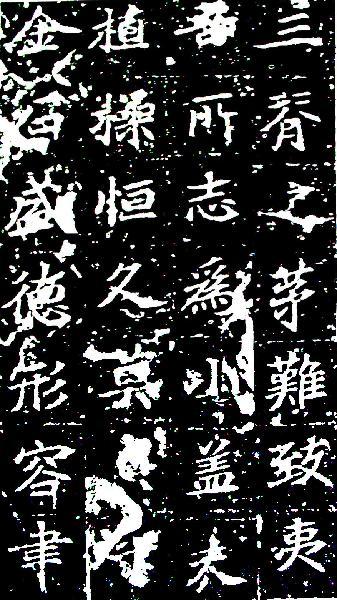 三脊之茅難致夷
吾所志爲小盖
植操恒久
金石盛德形容聿